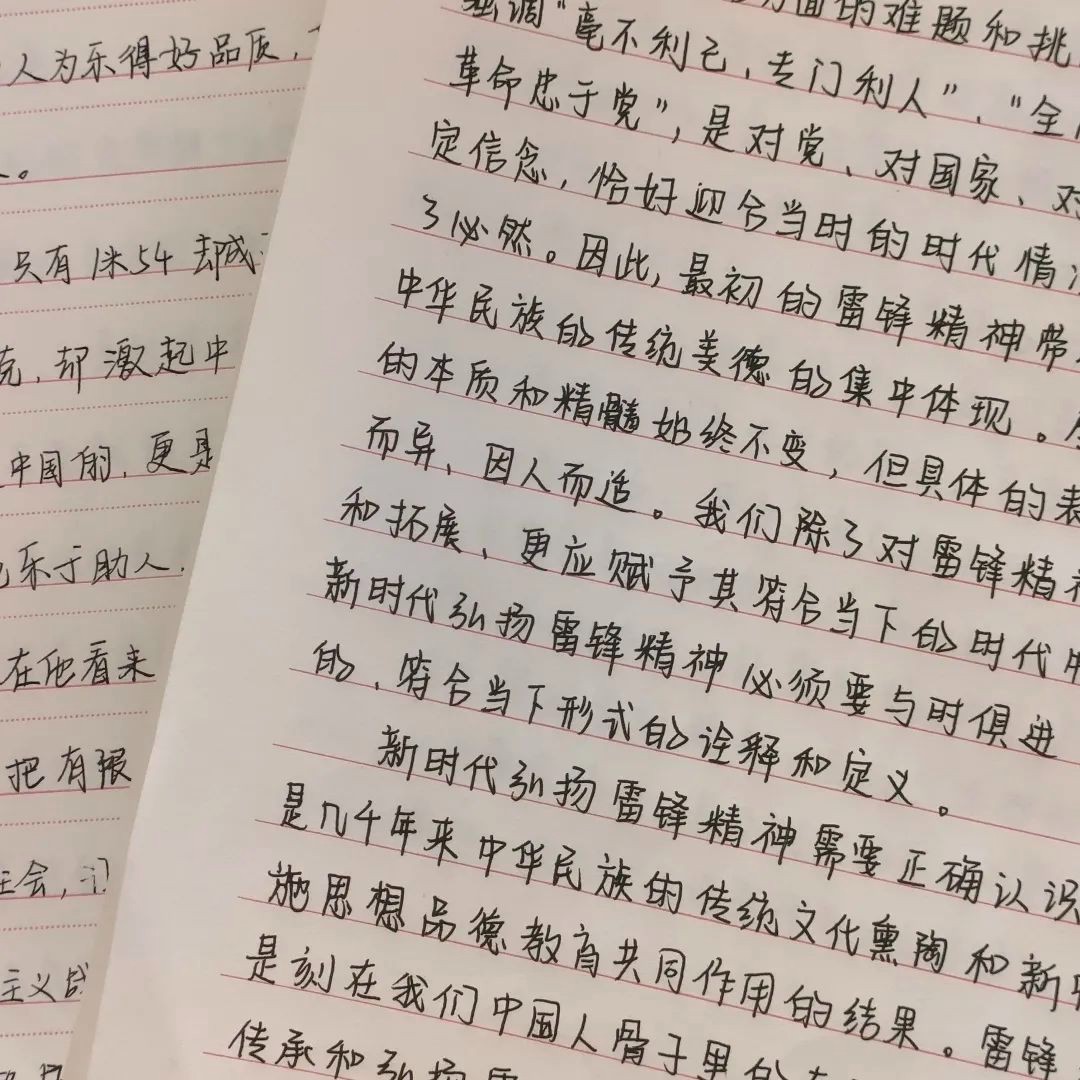 人为乐得好品质，
。
只有1米54却
，却激起中
中国的，更是
乐于助人，
在他看来
把有限
会，
主义战
强调“毫不利己，专门利人”、“全
革命忠于党”，是对党、对国家、对
定信念，恰好迎合当时的时代情
了必然。因此，最初的雷锋精神带
中华民族的传统美德的集中体现。
的本质和精髓始终不变，但具体的表
而异、因人而造。我们除了对雷锋精神
和拓展、更应赋予其符合当下的时代
新时代弘扬雷锋精神必须要与时俱进
的、符合当下形式的诠释和定义。
新时代弘扬雷锋精神需要正确认识
是几千年来中华民族的传统文化熏陶和新
施思想品德教育共同作用的结果。雷锋
是刻在我们中国人骨子里的
传承和弘扬雷